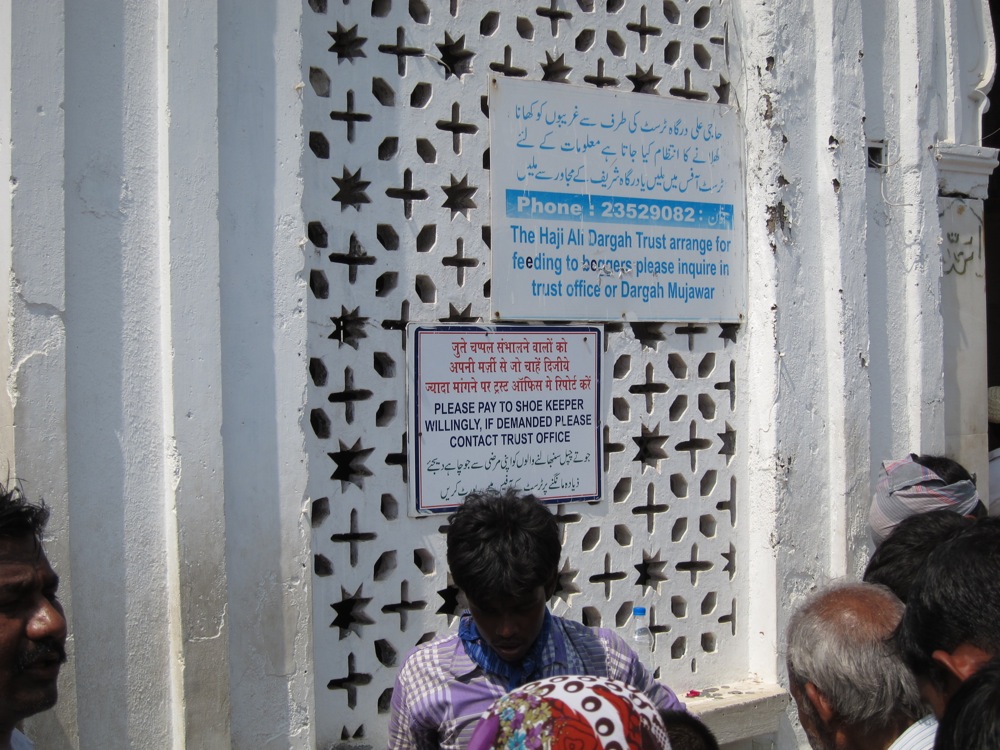 حاجی علی درگاہ ٹرسٹ کی طرف سے غریبوں کو کھانا
کھلانے کا انتظام کیا جاتا ہے معلومات کے لئے
ٹرسٹ آفس میں ملیں یا درگاہ شریف کے مجاور سے ملیں
Phone : 23529082 : فون
The Haji Ali Dargah Trust arrange for
feeding to beggers please inquire in
trust office or Dargah Mujawar
जुते चप्पल संभालने वालों को
अपनी मर्ज़ी से जो चाहें दिजीये
ज्यादा मांगने पर ट्रस्ट ऑफिस मे रिपोर्ट करें
PLEASE PAY TO SHOE KEEPER
WILLINGLY, IF DEMANDED PLEASE
CONTACT TRUST OFFICE
جوتے چپل سنبھالنے والوں کو اپنی مرضی سے جو چاہے دیجئے
ذیادہ مانگنے پر ٹرسٹ کے آفس رپورٹ کریں